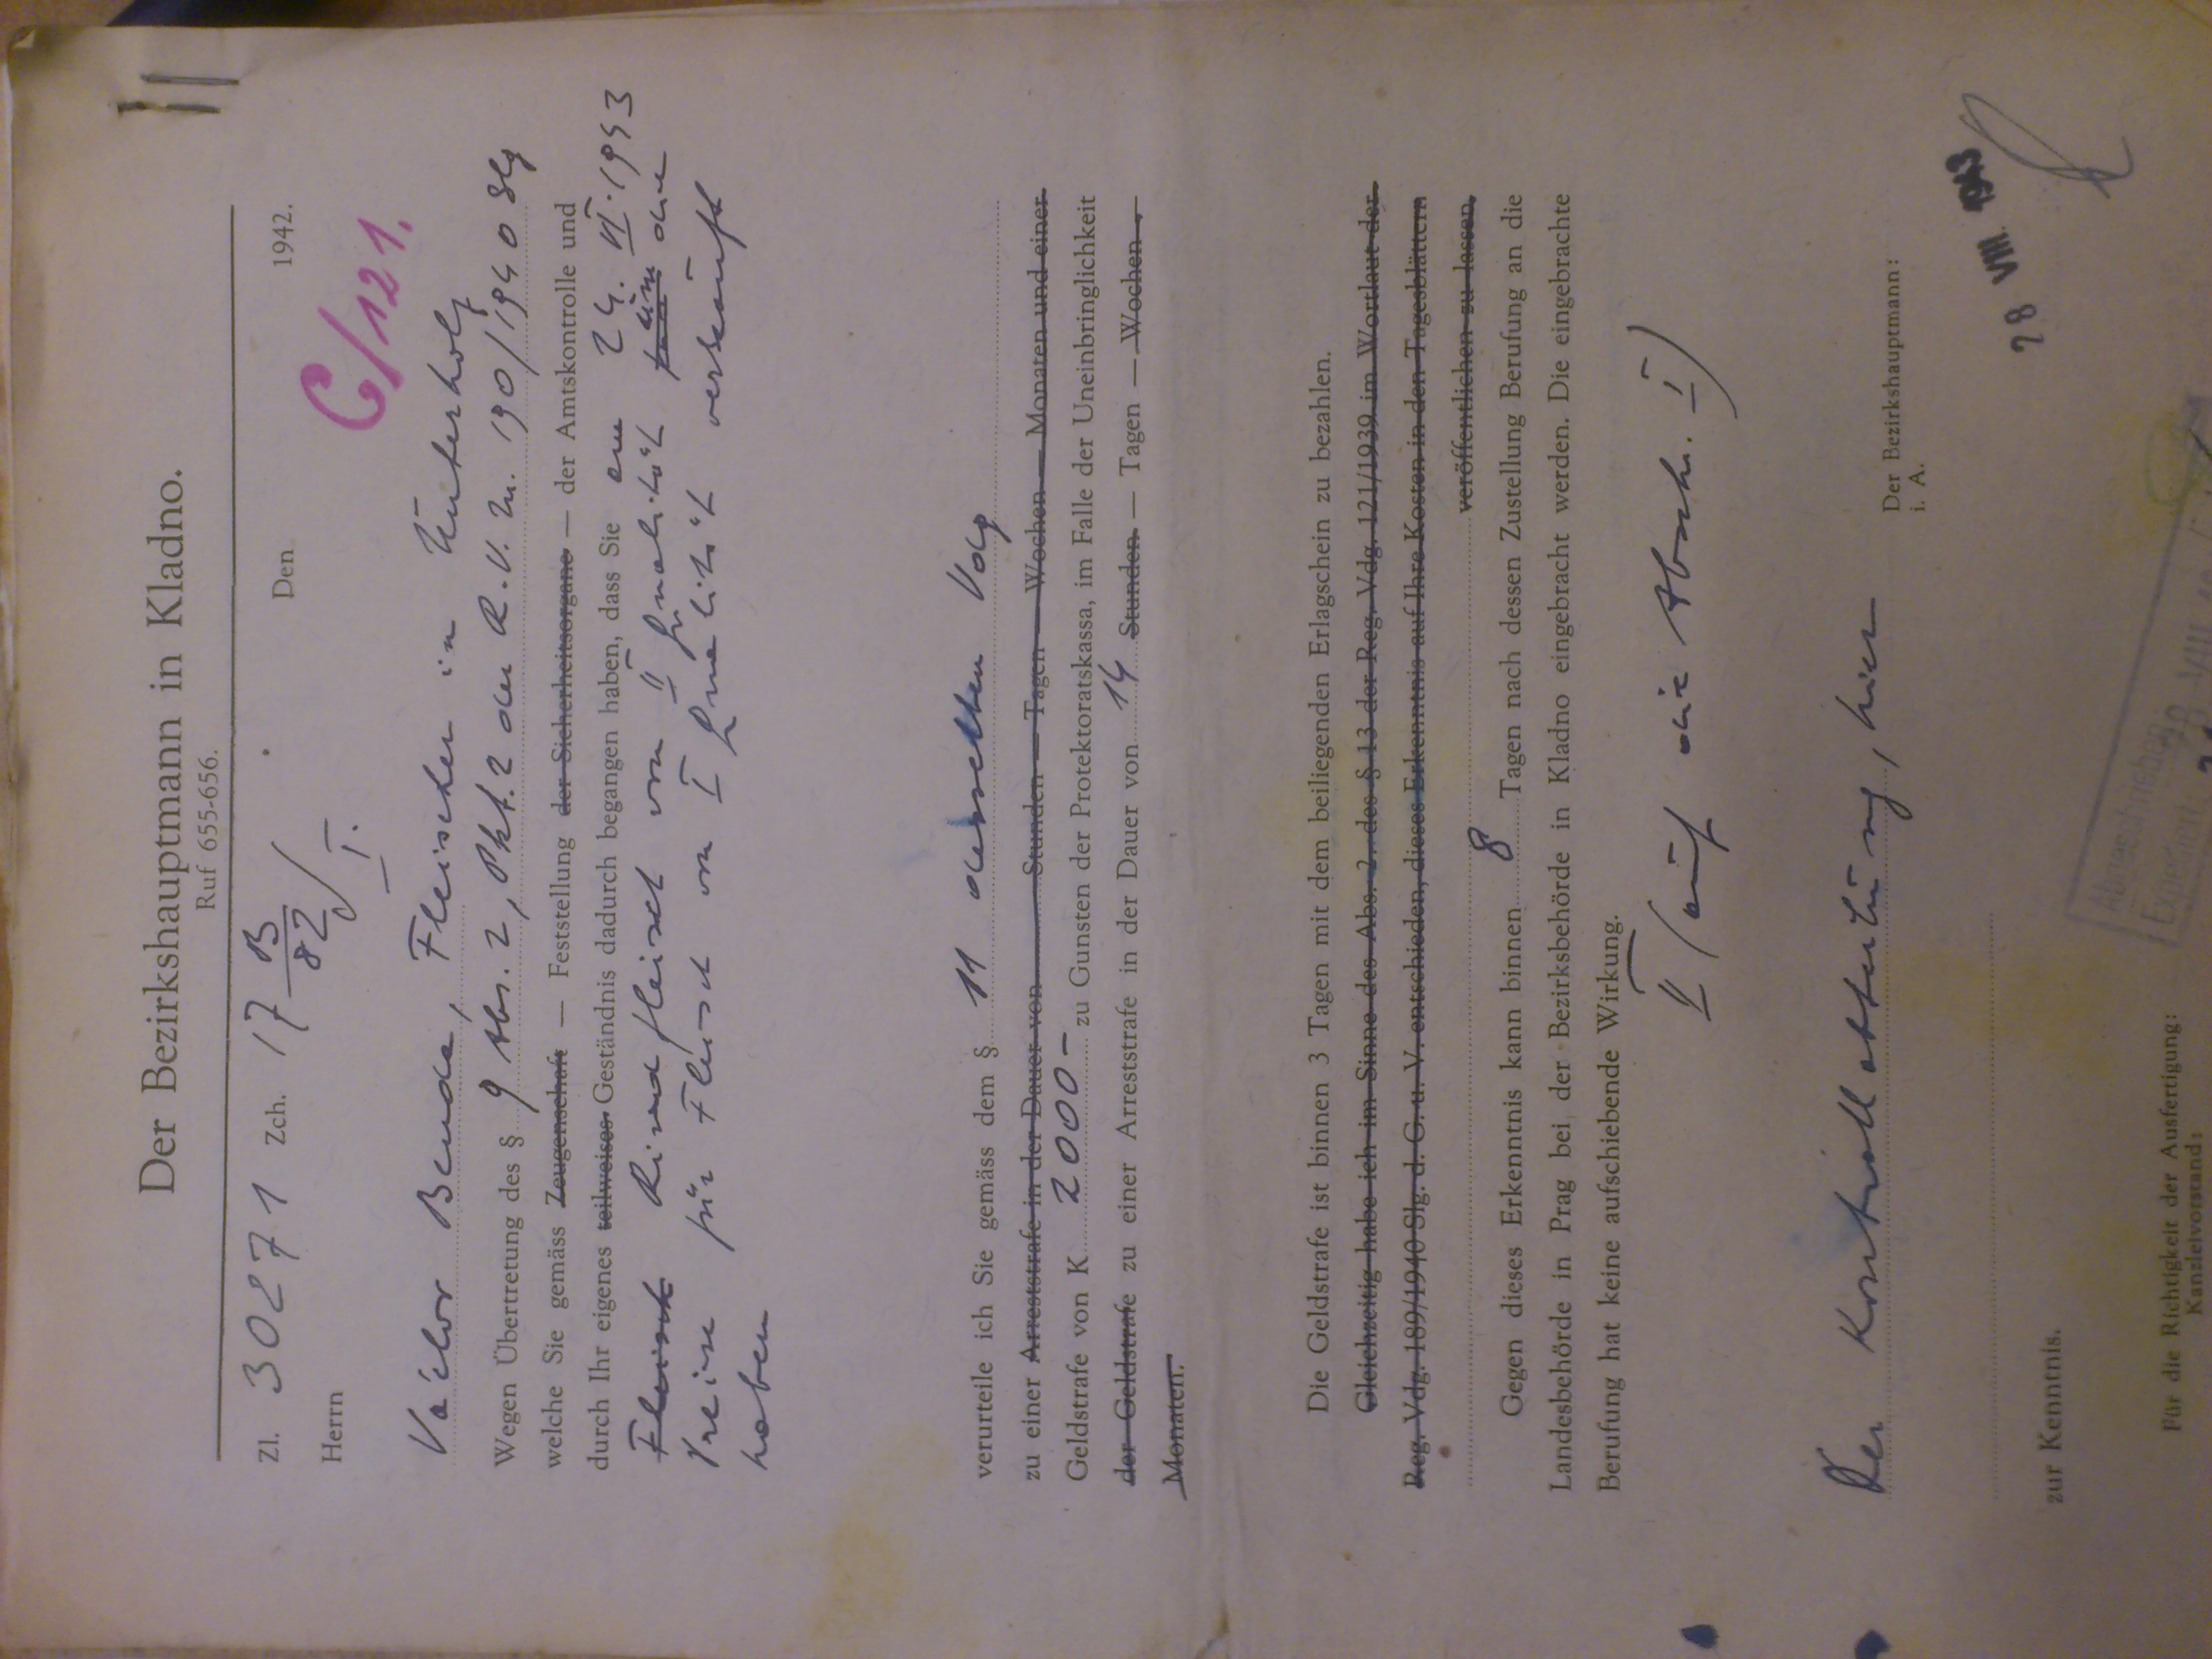 Der Bezirkshauptmann in Kladno.
Ruf 655-656.
Zl. 30271 Zch. 17 B/82/I. Den 1942.
Herrn
C/121.
Václav Benda, Fleischer in Unterholz
Wegen Übertretung des § 9 Abs. 2, Pkt. 2 der R.V. Nr. 190/1940 Slg
welche Sie gemäss Zeugenschaft — Feststellung der Sicherheitsorgane — der Amtskontrolle und
durch Ihr eigenes teilweises Geständnis dadurch begangen haben, dass Sie am 24. VI. 1943
Fleisch Rindfleisch von II Qualität um die
Preise für Fleisch von I Qualität verkauft
haben
verurteile ich Sie gemäss dem § 11 desselben Vdg
zu einer Arreststrafe in der Dauer von Stunden — Tagen — Wochen — Monaten und einer
Geldstrafe von K 2000- zu Gunsten der Protektoratskassa, im Falle der Uneinbringlichkeit
der Geldstrafe zu einer Arreststrafe in der Dauer von 14 Stunden — Tagen — Wochen -
Monaten.
Die Geldstrafe ist binnen 3 Tagen mit dem beiliegenden Erlagschein zu bezahlen.
Gleichzeitig habe ich im Sinne des Abs. 2. des § 13 der Reg. Vdg. 121/1939 im Wortlaut der
Reg. Vdg. 189/1940 Slg. d. G. u. V. entschieden, dieses Erkenntnis auf Ihre Kosten in den Tagesblättern
veröffentlichen zu lassen.
Gegen dieses Erkenntnis kann binnen 8 Tagen nach dessen Zustellung Berufung an die
Landesbehörde in Prag bei der Bezirksbehörde in Kladno eingebracht werden. Die eingebrachte
Berufung hat keine aufschiebende Wirkung.
II (auf die Abschr. I)
Der Kontrollabteilung, hier
Der Bezirkshauptmann:
i. A.
28 VIII. 1943
zur Kenntnis.
Abgeschrieben:
Expediert: 28 VIII
Für die Richtigkeit der Ausfertigung:
Kanzleivorstand: